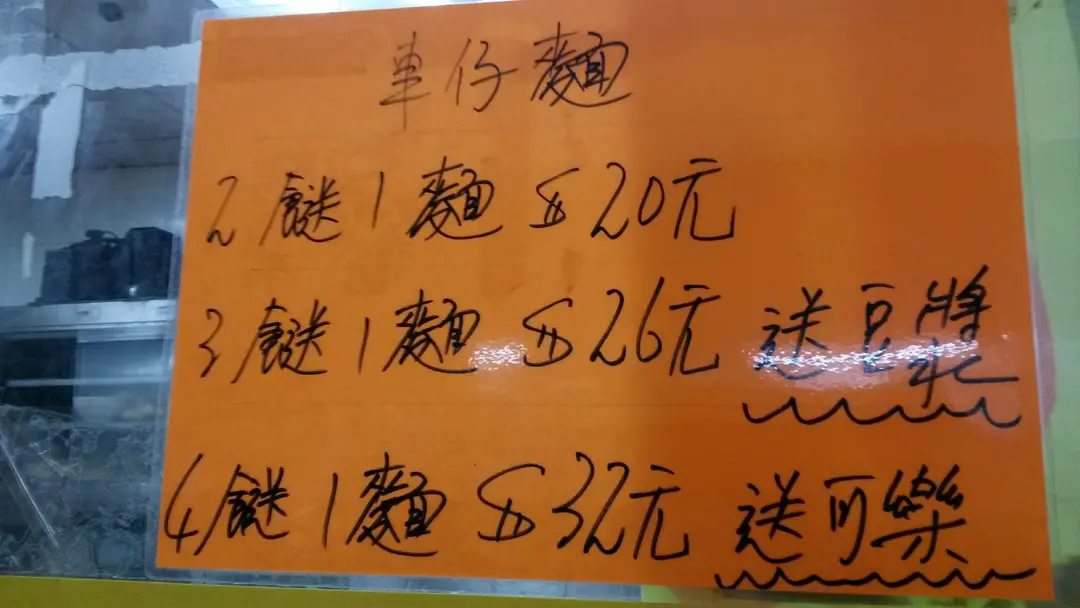 車仔麵
2餸1麵 $20元
3餸1麵 $26元 送豆漿
4餸1麵 $32元 送可樂